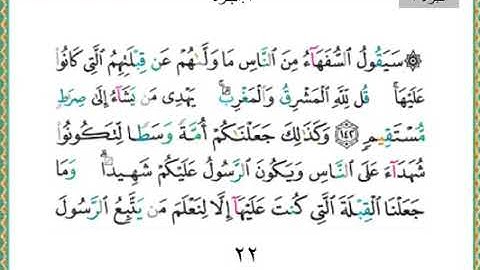 ۞ سَيَقُولُ ٱلسُّفَهَآءُ مِنَ ٱلنَّاسِ مَا وَلَّىٰهُمْ عَن قِبْلَتِهِمُ ٱلَّتِى كَانُوا۟
عَلَيْهَا ۚ قُل لِّلَّهِ ٱلْمَشْرِقُ وَٱلْمَغْرِبُ ۚ يَهْدِى مَن يَشَآءُ إِلَىٰ صِرَٰطٍ
مُّسْتَقِيمٍ ١٤٢ وَكَذَٰلِكَ جَعَلْنَٰكُمْ أُمَّةً وَسَطًا لِّتَكُونُوا۟
شُهَدَآءَ عَلَى ٱلنَّاسِ وَيَكُونَ ٱلرَّسُولُ عَلَيْكُمْ شَهِيدًا ۗ وَمَا
جَعَلْنَا ٱلْقِبْلَةَ ٱلَّتِى كُنتَ عَلَيْهَآ إِلَّا لِنَعْلَمَ مَن يَتَّبِعُ ٱلرَّسُولَ
٢٢